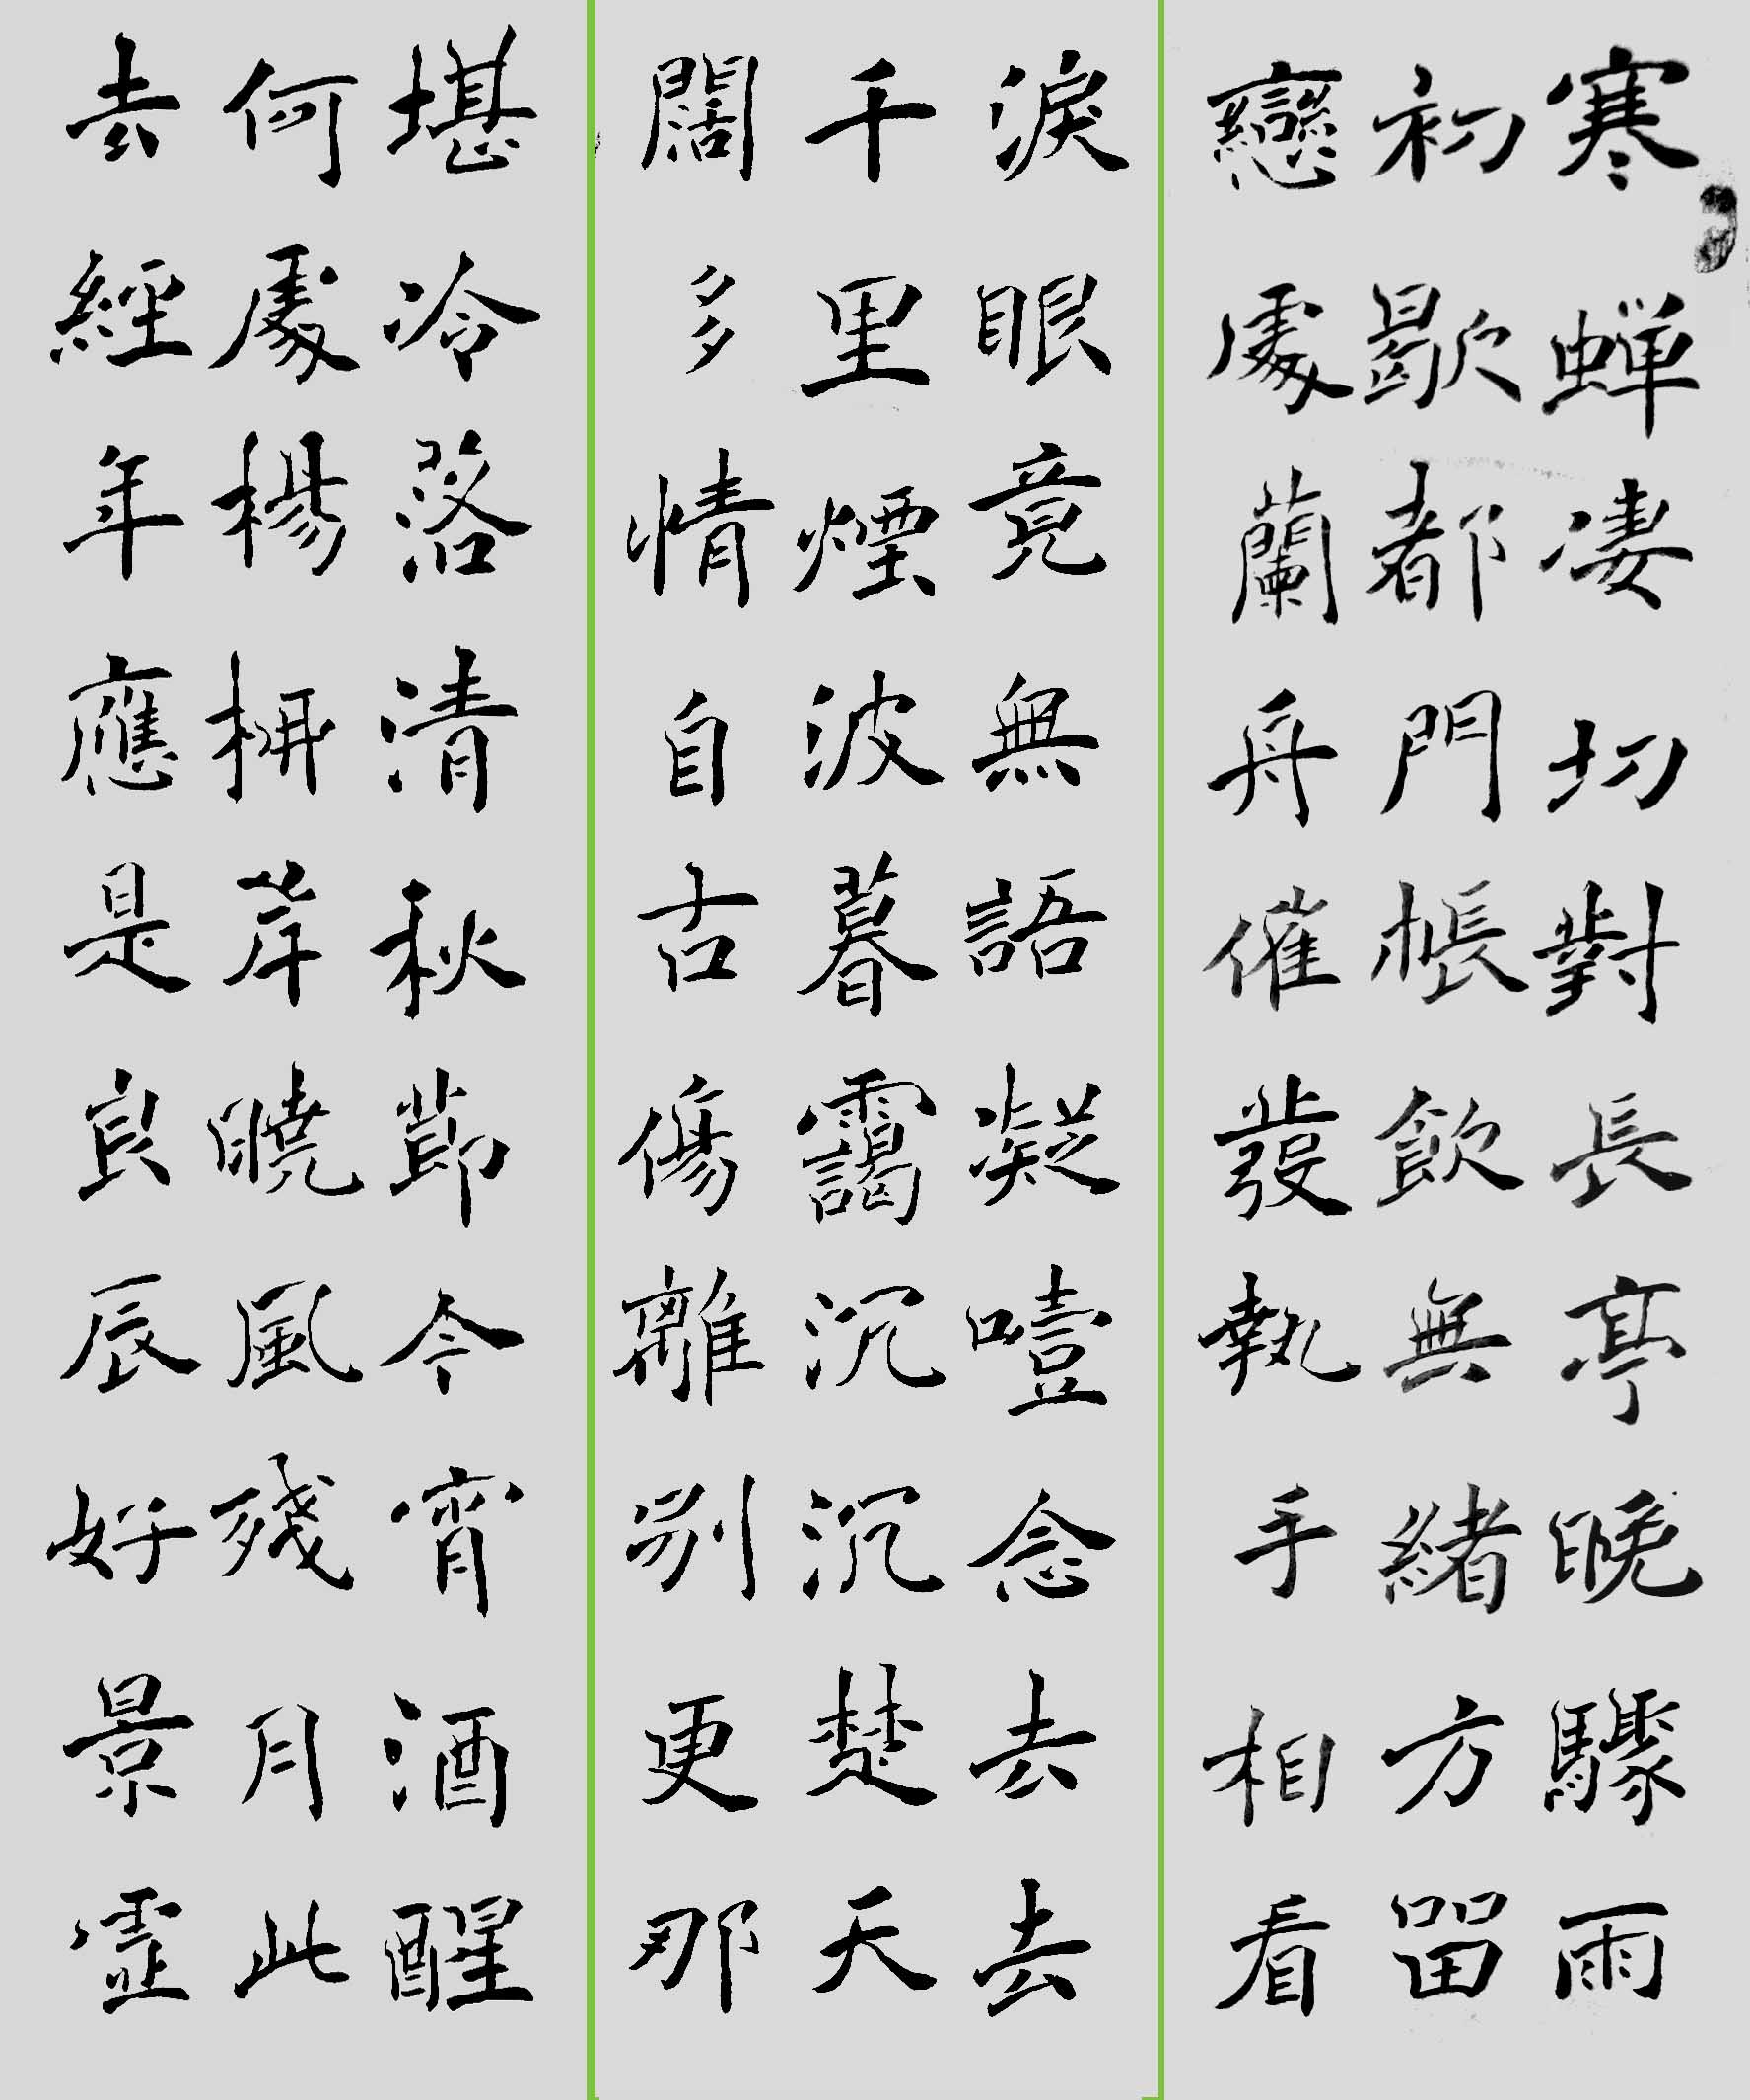 寒蟬凄切對長亭晚驟雨
初歇都門帳飲無緒方留
戀處蘭舟催發執手相看
淚眼竟無語凝噎念去去
千里煙波暮靄沉沉楚天
闊多情自古傷離別更那
堪冷落清秋節今宵酒醒
何處楊柳岸曉風殘月此
去經年應是良辰好景虛